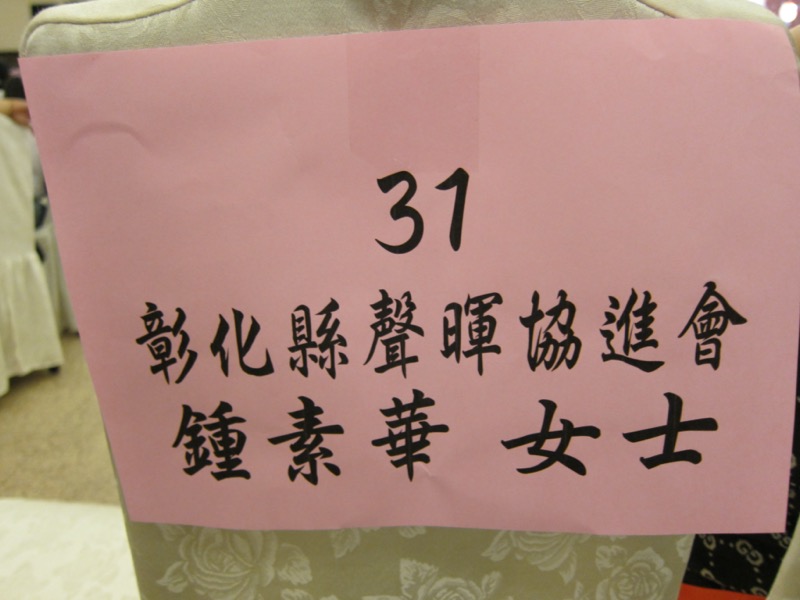 31
彰化縣聲暉協進會
鍾素華 女士